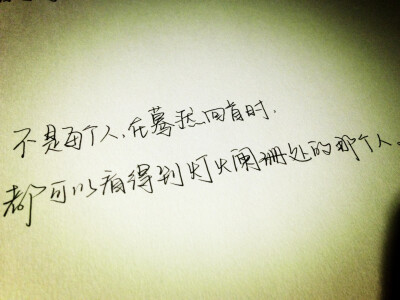 不是每个人，在蓦然回首时，
都可以看得到灯火阑珊处的那个人。